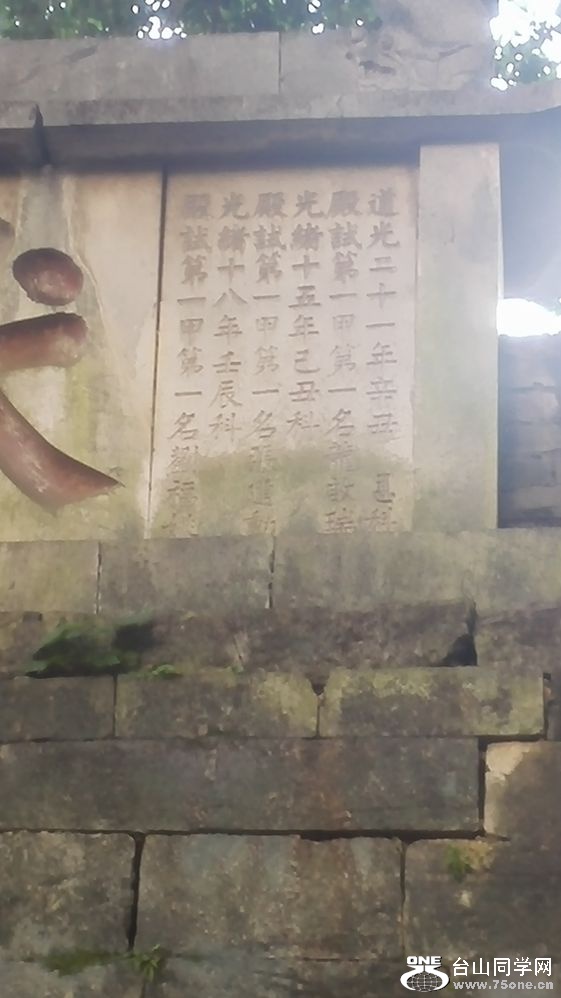 道光二十一年辛丑恩科
殿試第一甲第一名龍啟瑞
光緒十五年己丑科
殿試第一甲第一名張建勳
光緒十八年壬辰科
殿試第一甲第一名劉福姚
ONE 台山同学网
www.75one.cn